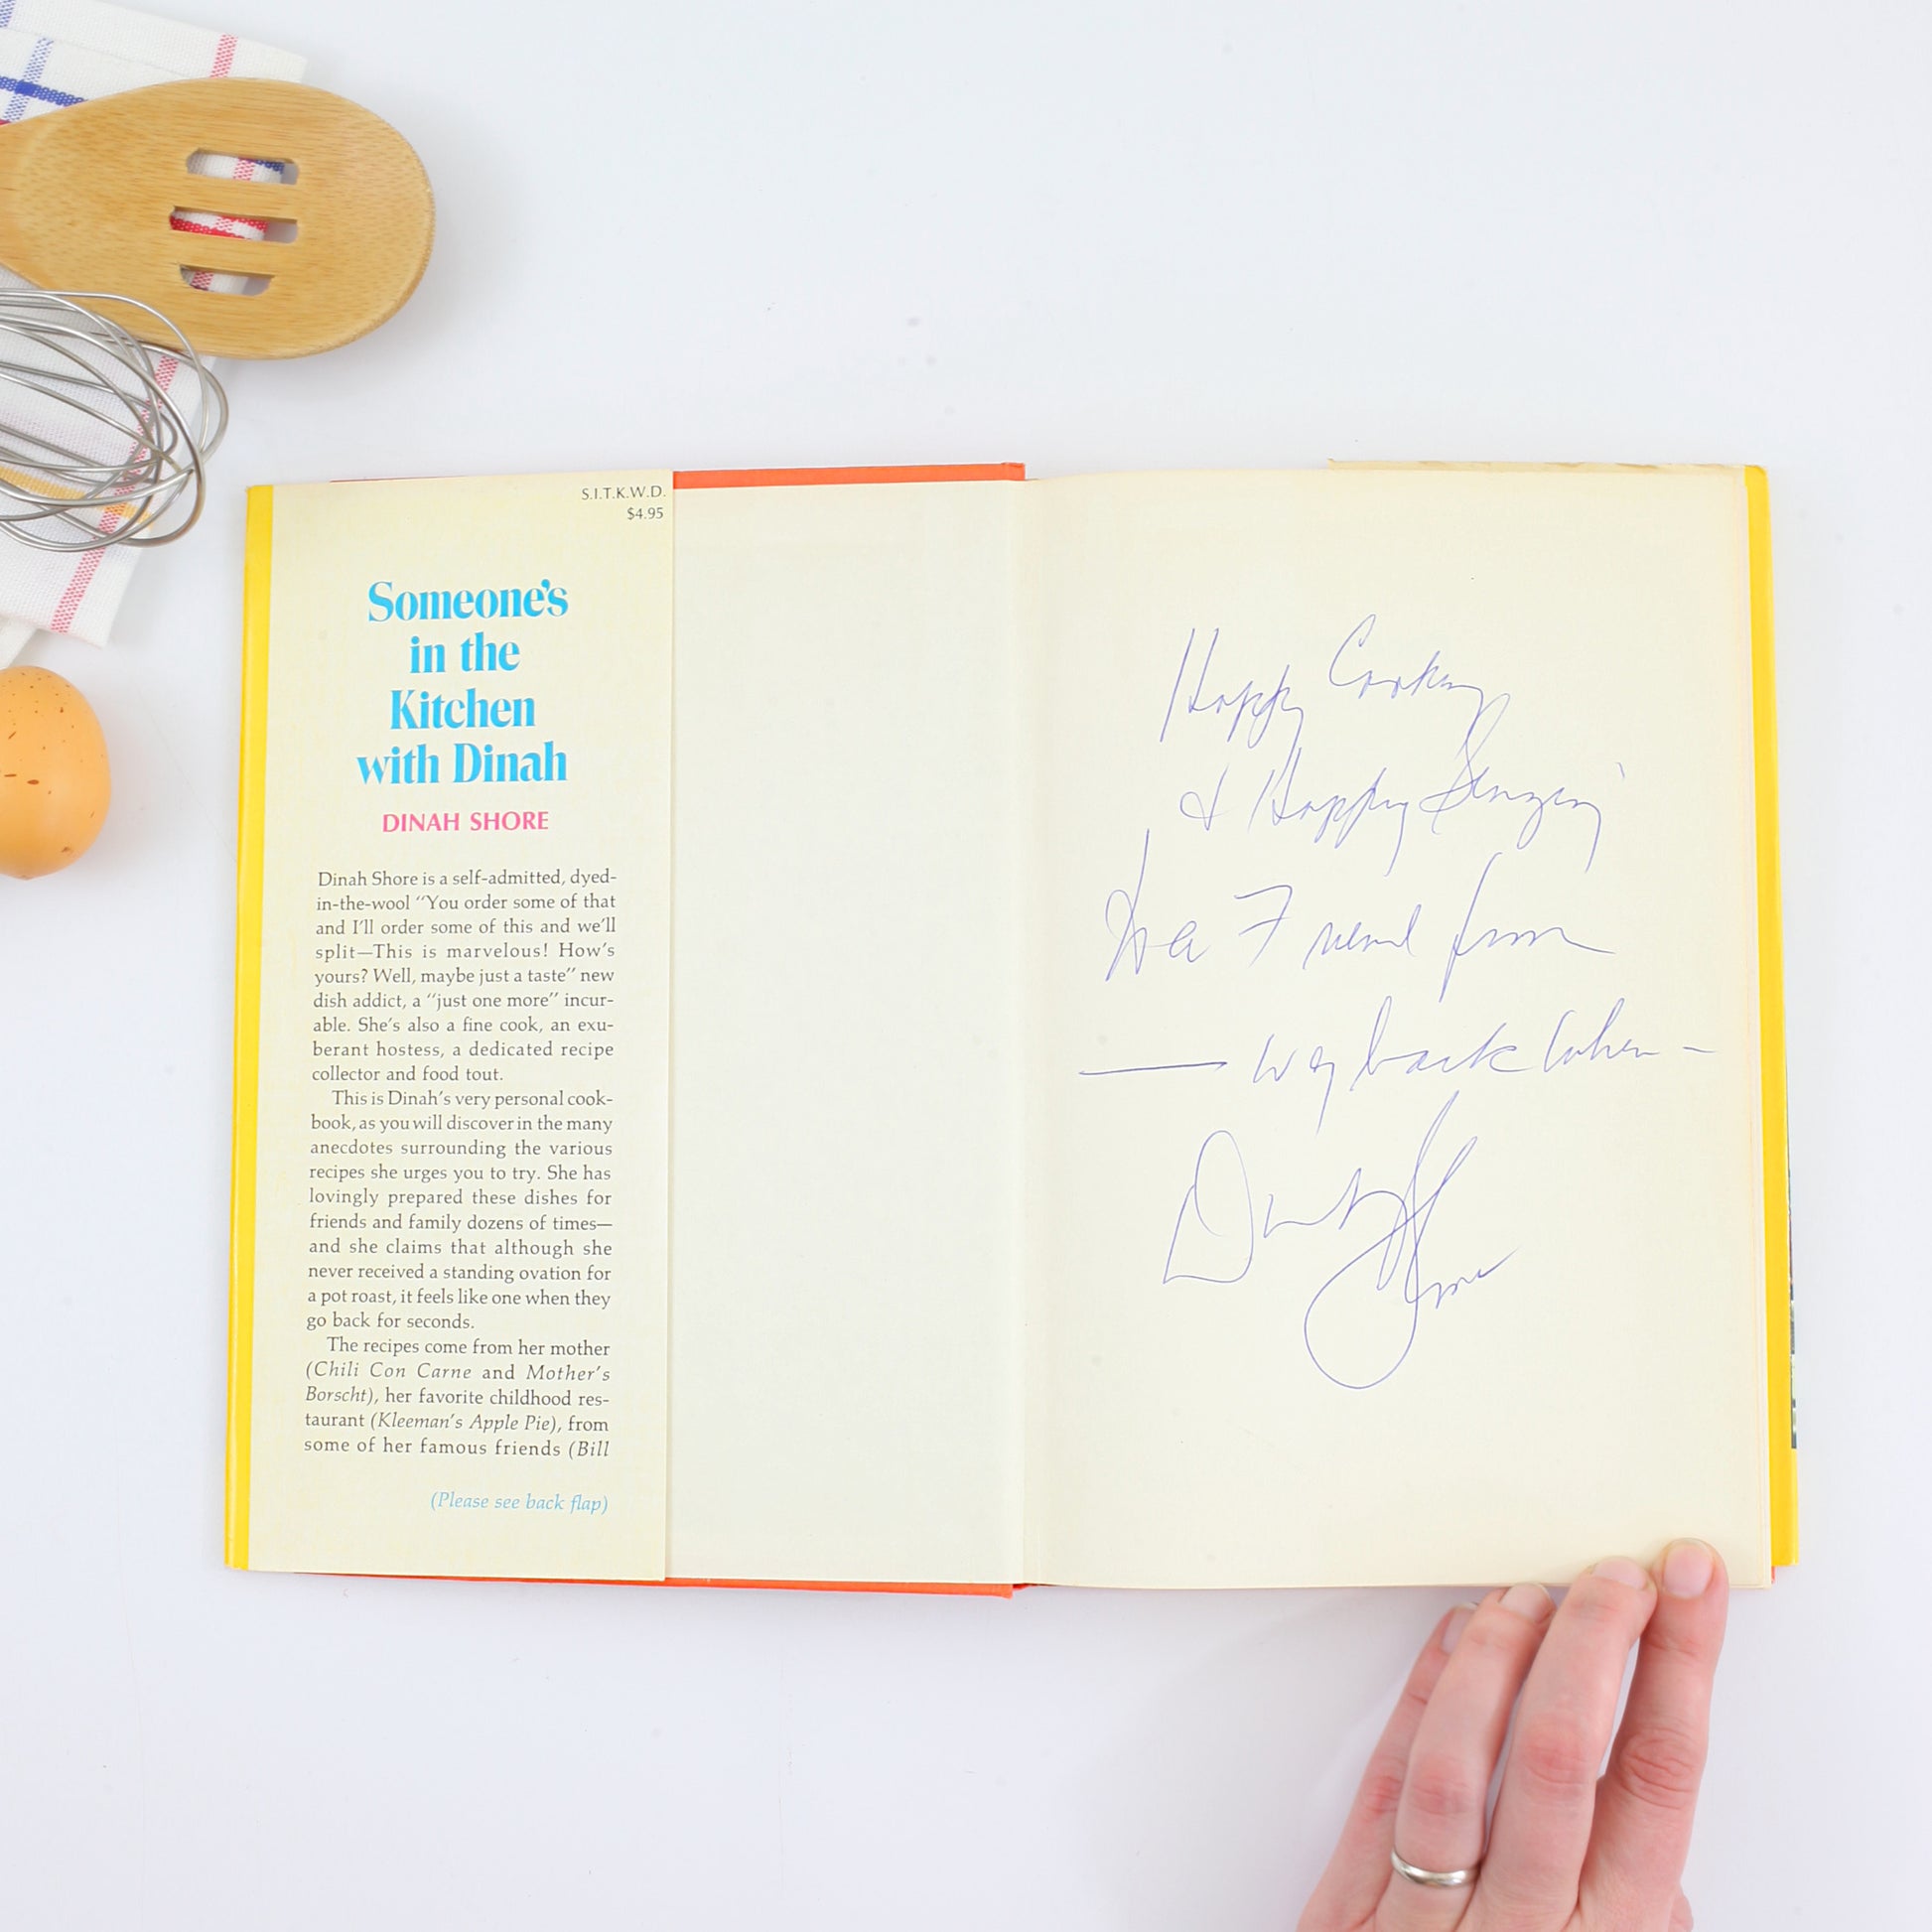 S.I.T.K.W.D.
$4.95
Someone's
in the
Kitchen
with Dinah
DINAH SHORE
Dinah Shore is a self-admitted, dyed-
in-the-wool "You order some of that
and I'll order some of this and we'll
split—This is marvelous! How's
yours? Well, maybe just a taste" new
dish addict, a "just one more" incur-
able. She's also a fine cook, an exu-
berant hostess, a dedicated recipe
collector and food tout.
This is Dinah's very personal cook-
book, as you will discover in the many
anecdotes surrounding the various
recipes she urges you to try. She has
lovingly prepared these dishes for
friends and family dozens of times—
and she claims that although she
never received a standing ovation for
a pot roast, it feels like one when they
go back for seconds.
The recipes come from her mother
(Chili Con Carne and Mother's
Borscht), her favorite childhood res-
taurant (Kleeman's Apple Pie), from
some of her famous friends (Bill
(Please see back flap)
Happy Cooking
& Happy Singing
to a Friend from
— way back when –
Dinah Shore